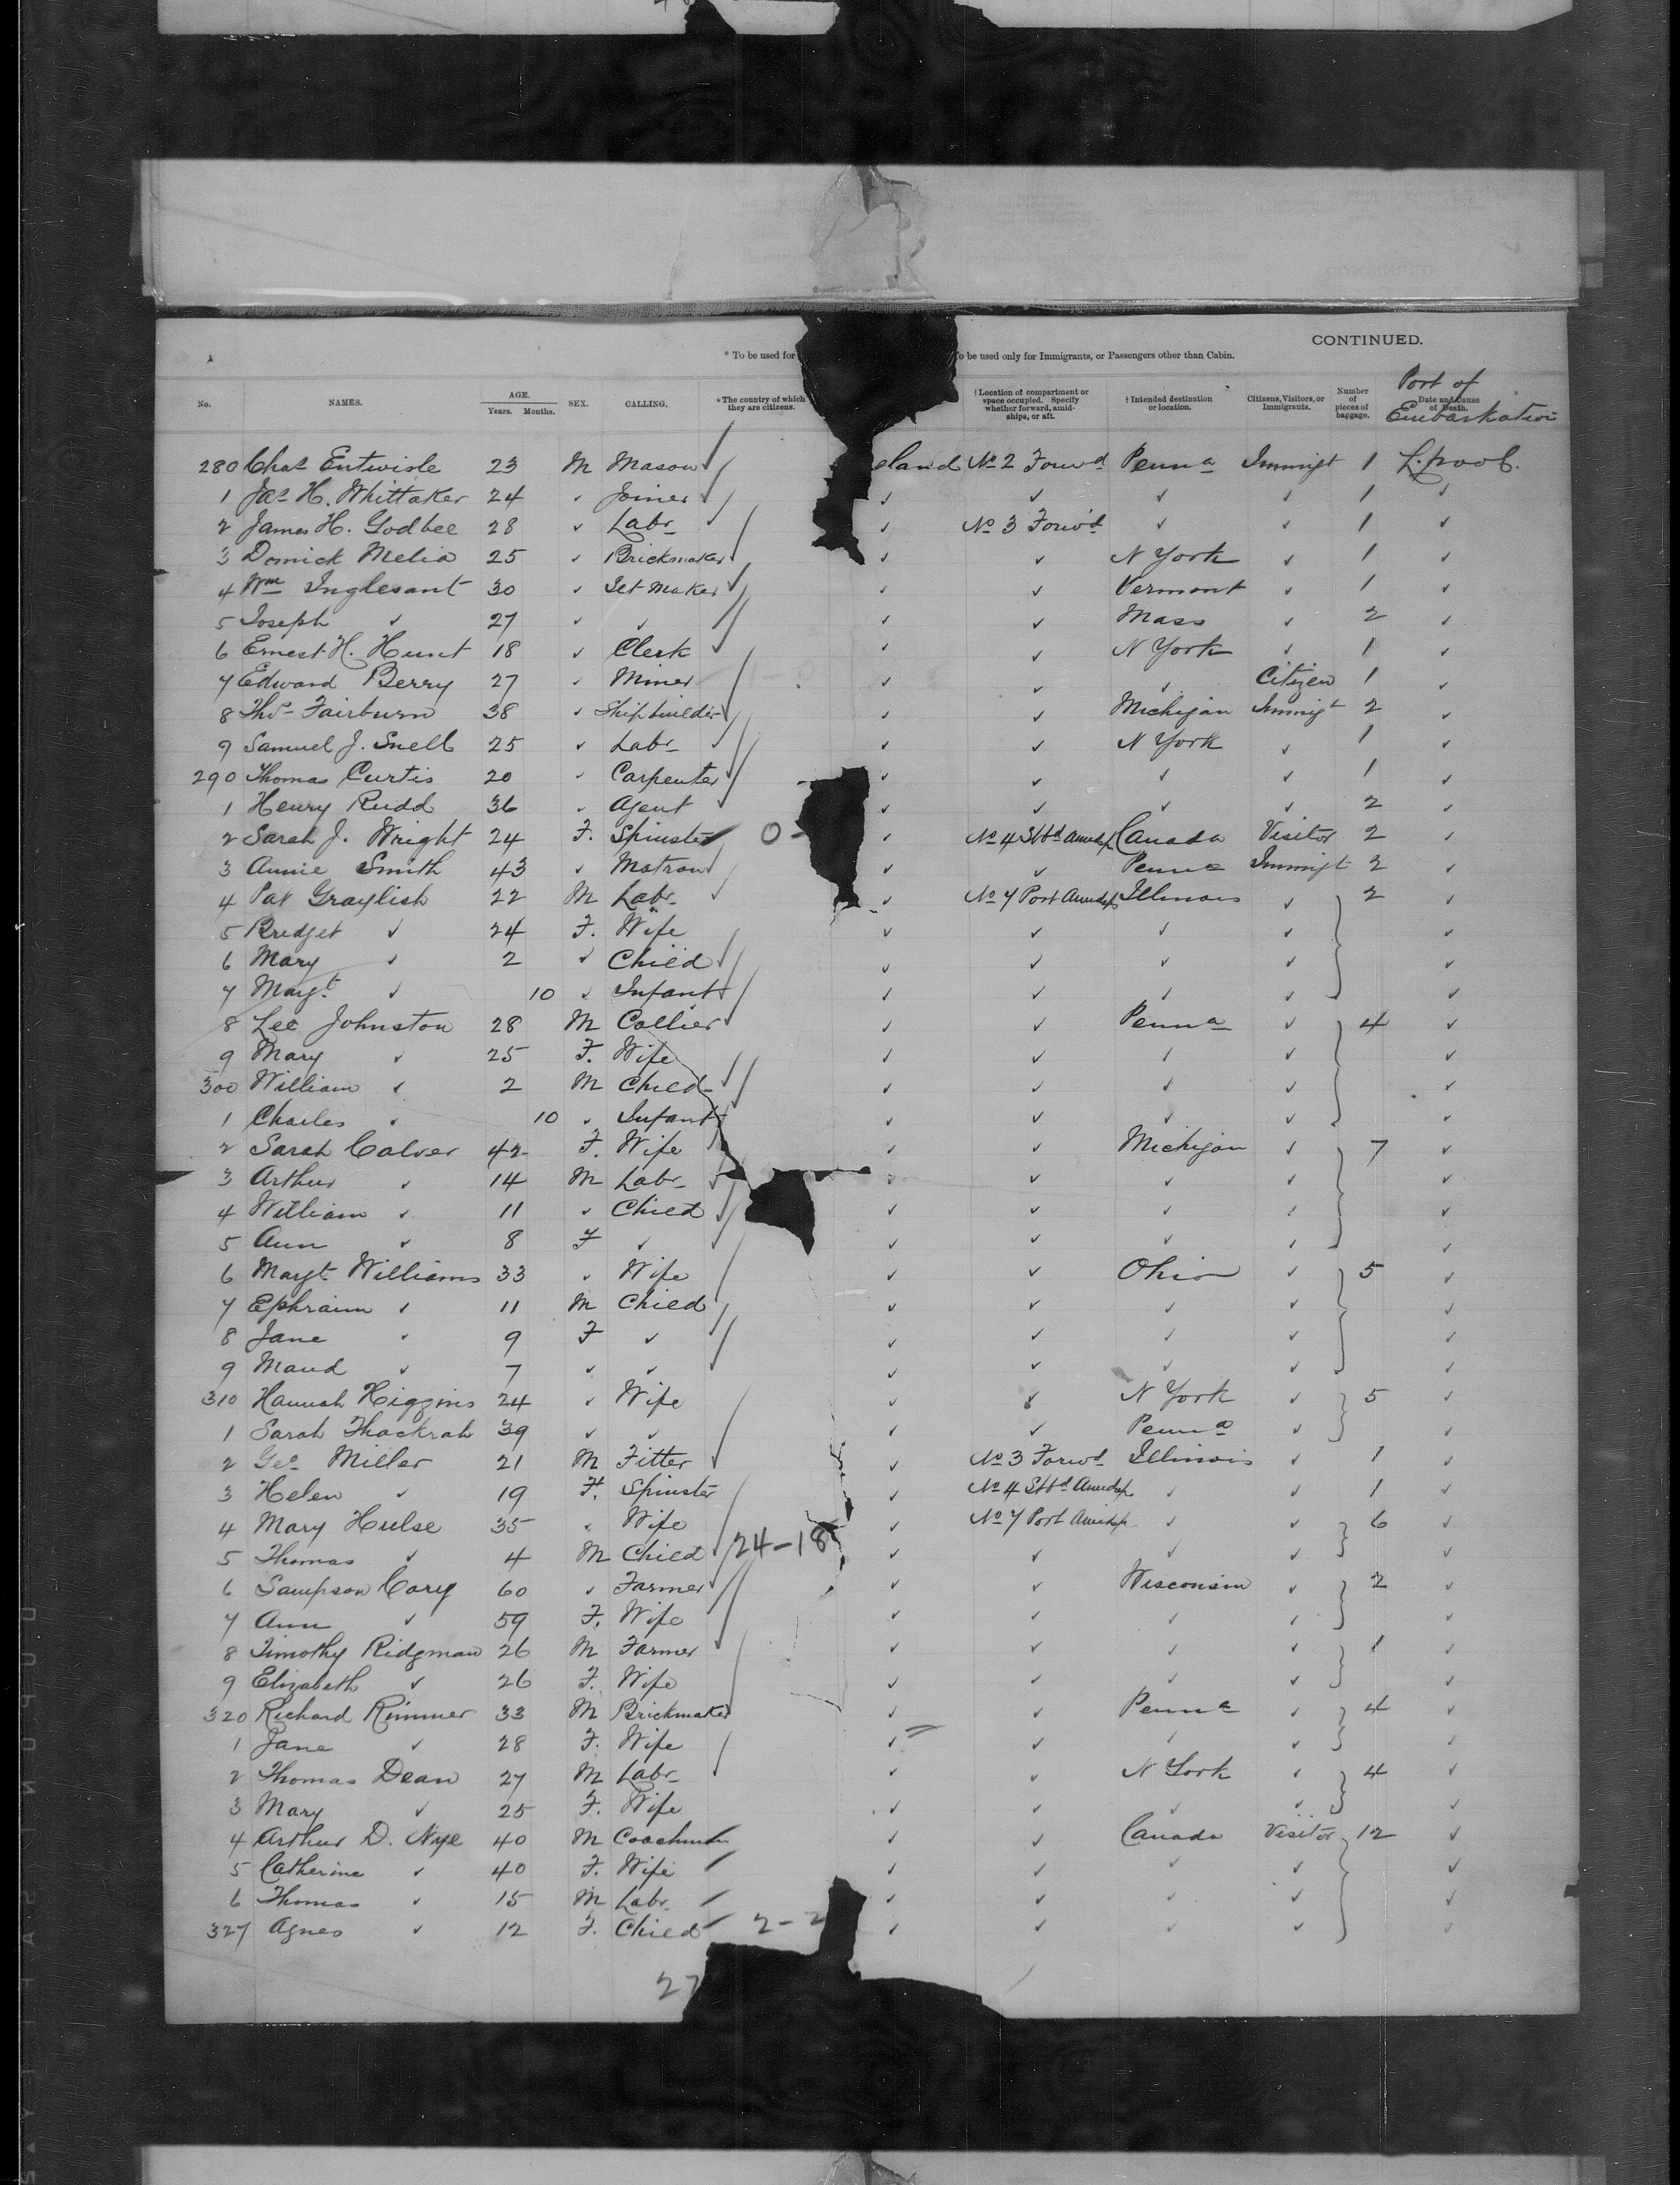 CONTINUED.
* To be used for
o be used only for Immigrants, or Passengers other than Cabin.
No. NAMES. AGE. Years. Months. SEX. CALLING. * The country of which they are citizens. † Location of compartment or space occupied. Specify whether forward, amidships, or aft. † Intended destination or location. Citizens, Visitors, or Immigrants. Number of pieces of baggage. Date and Cause of Death. Port of Embarkation
280 Chas Entwisle 23 M Mason eland No 2 Forwd Penna Immigt 1 L.pool.
1 Jas H. Whittaker 24 ✓ Joiner ✓ ✓ ✓ ✓ 1 ✓
2 James H. Godbee 28 ✓ Labr ✓ No 3 Forwd ✓ ✓ 1 ✓
3 Domick Melia 25 ✓ Brickmaker ✓ ✓ N York ✓ 1 ✓
4 Wm Inglesant 30 ✓ Set Maker ✓ ✓ Vermont ✓ 1 ✓
5 Joseph ✓ 27 ✓ ✓ ✓ ✓ Mass ✓ 2 ✓
6 Ernest H. Hunt 18 ✓ Clerk ✓ ✓ N York ✓ 1 ✓
7 Edward Berry 27 ✓ Miner ✓ ✓ ✓ Citizen 1 ✓
8 Thos Fairburn 38 ✓ Shipbuilder ✓ ✓ Michigan Immigt 2 ✓
9 Samuel J. Snell 25 ✓ Labr ✓ ✓ N York ✓ 1 ✓
290 Thomas Curtis 20 ✓ Carpenter ✓ ✓ ✓ ✓ 1 ✓
1 Henry Rudd 36 ✓ Agent ✓ ✓ ✓ ✓ 2 ✓
2 Sarah J. Wright 24 F. Spinster 0- ✓ No 4 Stbd Amidsp Canada Visitor 2 ✓
3 Annie Smith 43 ✓ Matron ✓ ✓ Penna Immigt 2 ✓
4 Pat Graylish 22 M Labr ✓ No 7 Port Amidsps Illinois ✓ 2 ✓
5 Bredget ✓ 24 F. Wife ✓ ✓ ✓ ✓ ✓
6 Mary ✓ 2 ✓ Child ✓ ✓ ✓ ✓ ✓
7 Margt ✓ 10 ✓ Infant ✓ ✓ ✓ ✓ ✓
8 Lee Johnston 28 M Collier ✓ ✓ Penna ✓ 4 ✓
9 Mary ✓ 25 F. Wife ✓ ✓ ✓ ✓ ✓
300 William ✓ 2 M Child ✓ ✓ ✓ ✓ ✓
1 Charles ✓ 10 ✓ Infant ✓ ✓ ✓ ✓ ✓
2 Sarah Calver 42 F. Wife ✓ ✓ Michigan ✓ 7 ✓
3 Arthur ✓ 14 M Labr ✓ ✓ ✓ ✓ ✓
4 William ✓ 11 ✓ Child ✓ ✓ ✓ ✓ ✓
5 Ann ✓ 8 F ✓ ✓ ✓ ✓ ✓ ✓
6 Margt Williams 33 ✓ Wife ✓ ✓ Ohio ✓ 5 ✓
7 Ephraim ✓ 11 M Child ✓ ✓ ✓ ✓ ✓
8 Jane ✓ 9 F ✓ ✓ ✓ ✓ ✓ ✓
9 Maud ✓ 7 ✓ ✓ ✓ ✓ ✓ ✓ ✓
310 Hannah Higgins 24 ✓ Wife ✓ ✓ N York ✓ 5 ✓
1 Sarah Thackrah 39 ✓ ✓ ✓ ✓ Penna ✓ ✓
2 Geo Miller 21 M Fitter ✓ No 3 Forwd Illinois ✓ 1 ✓
3 Helen ✓ 19 F. Spinster ✓ No 4 Stbd Amidsp ✓ ✓ 1 ✓
4 Mary Hulse 35 ✓ Wife ✓ No 7 Port Amidsp ✓ ✓ 6 ✓
5 Thomas ✓ 4 M Child 24-18 ✓ ✓ ✓ ✓ ✓
6 Sampson Cory 60 ✓ Farmer ✓ ✓ Wisconsin ✓ 2 ✓
7 Ann ✓ 59 F. Wife ✓ ✓ ✓ ✓ ✓
8 Timothy Ridgman 26 M Farmer ✓ ✓ ✓ ✓ 1 ✓
9 Elizabeth ✓ 26 F. Wife ✓ ✓ ✓ ✓ ✓
320 Richard Rimmer 33 M Brickmaker ✓ ✓ Penna ✓ 4 ✓
1 Jane ✓ 28 F. Wife ✓ ✓ ✓ ✓ ✓
2 Thomas Dean 27 M Labr ✓ ✓ N York ✓ 4 ✓
3 Mary ✓ 25 F. Wife ✓ ✓ ✓ ✓ ✓
4 Arthur D. Nye 40 M Coachman ✓ ✓ Canada Visitor 12 ✓
5 Catherine ✓ 40 F. Wife ✓ ✓ ✓ ✓ ✓
6 Thomas ✓ 15 M Labr ✓ ✓ ✓ ✓ ✓
327 Agnes ✓ 12 F. Child 2-2 ✓ ✓ ✓ ✓ ✓
27